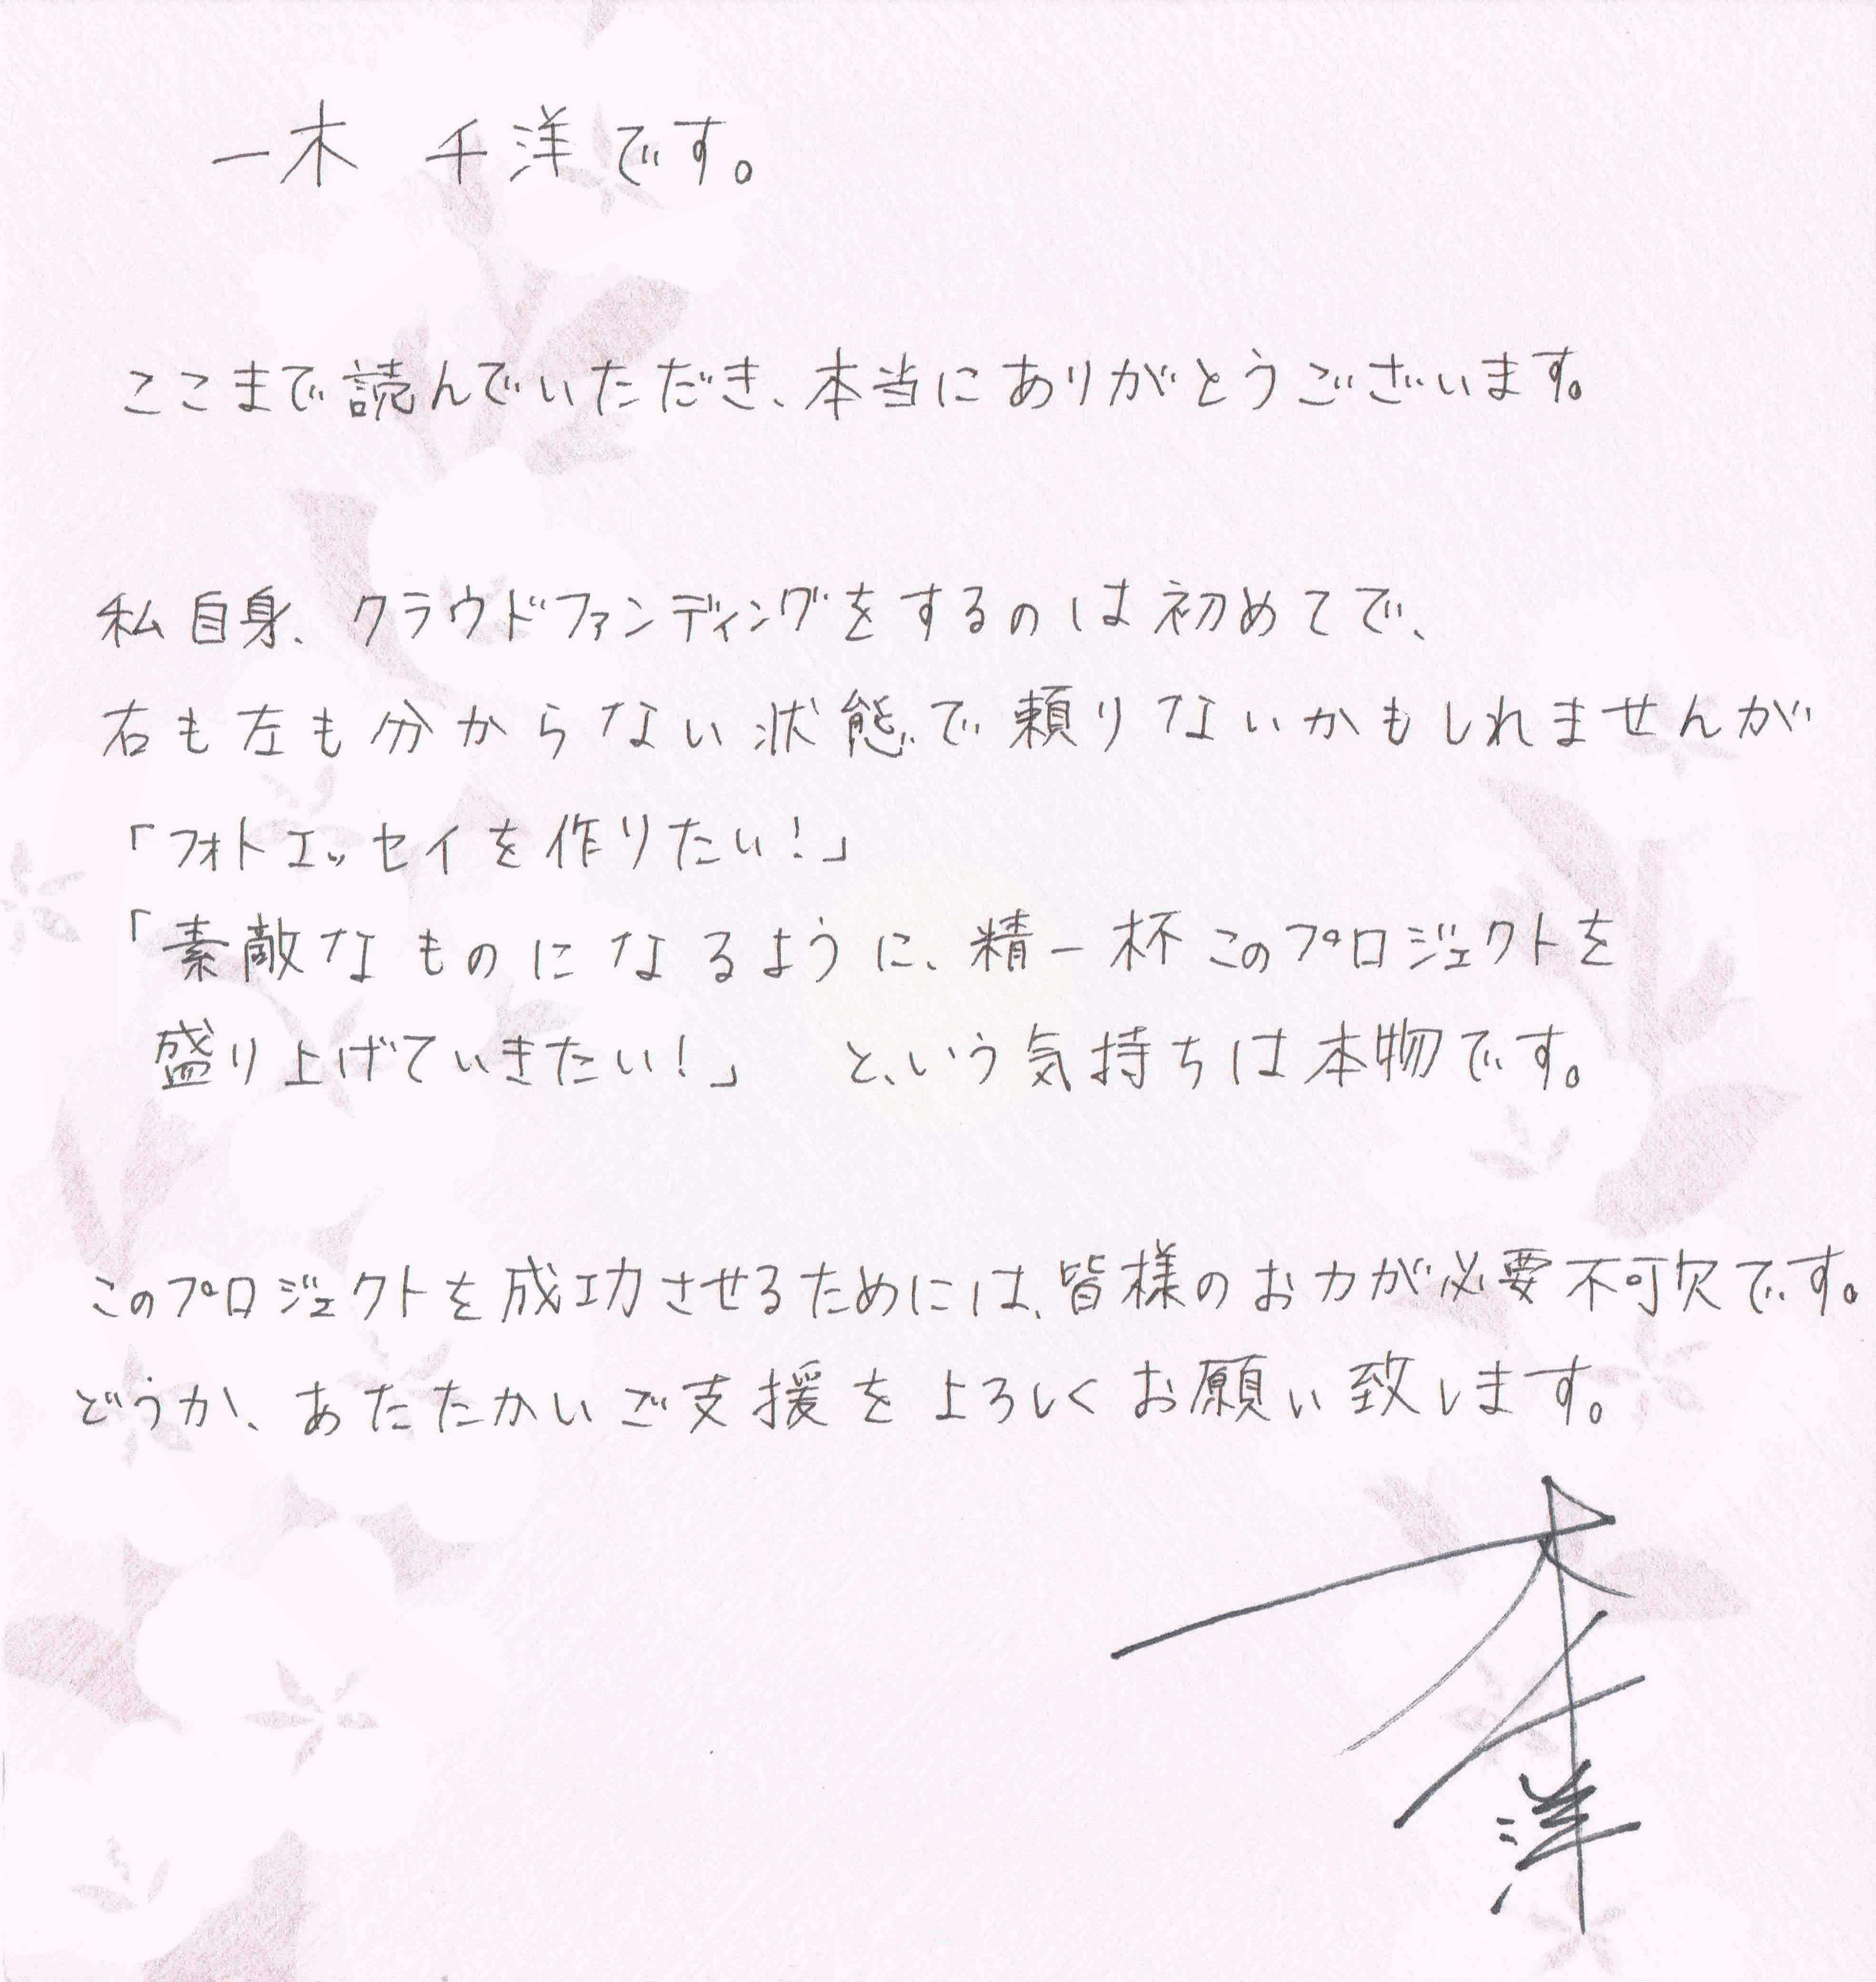 一木　千洋です。
ここまで読んでいただき、本当にありがとうございます。
私自身、クラウドファンディングをするのは初めてで、
右も左も分からない状態で頼りないかもしれませんが
「フォトエッセイを作りたい!」
「素敵なものになるように、精一杯このプロジェクトを
盛り上げていきたい!」　という気持ちは本物です。
このプロジェクトを成功させるためには、皆様のお力が必要不可欠です。
どうか、あたたかいご支援をよろしくお願い致します。
一木千洋